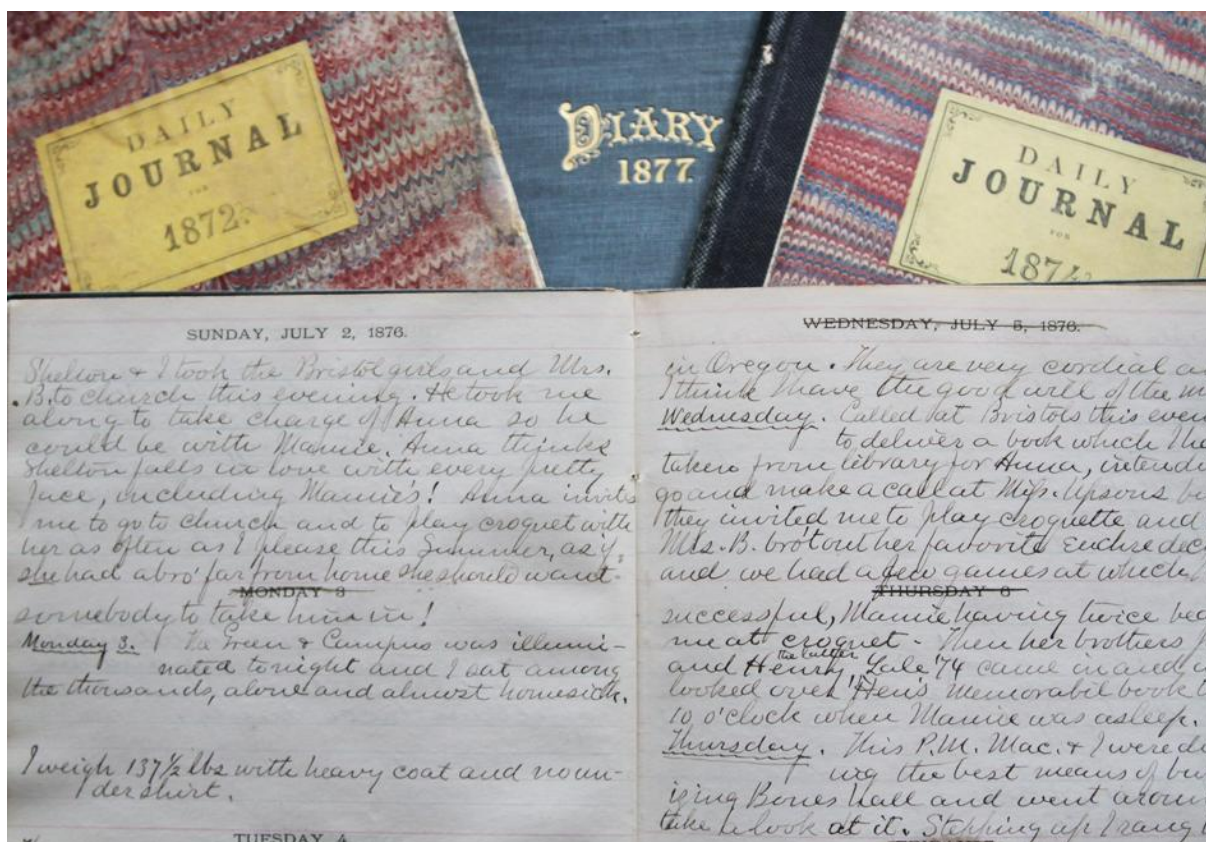 DAILY
JOURNAL
FOR
1872.
DIARY
1877.
DAILY
JOURNAL
FOR
1874.
SUNDAY, JULY 2, 1876.
Shelton & I took the Bristol girls and Mrs.
B. to church this evening. He took me
along to take charge of Anna so he
could be with Mamie. Anna thinks
Shelton falls in love with every pretty
face, including Mamie's! Anna invites
me to go to church and to play croquet with
her as often as I please this Summer, as if
she had a bro' far from home she should want
MONDAY 3
somebody to take him in!
Monday 3. The Green & Campus was illumi-
nated tonight and I sat among
the thousands, alone and almost homesick.
I weigh 137½ lbs with heavy coat and no un-
dershirt.
TUESDAY 4
WEDNESDAY, JULY 5, 1876.
in Oregon. They are very cordial
I think I have the good will of the
Wednesday. Called at Bristols this
to deliver a book which
taken from library for Anna,
go and make a call at Miss. Upsons
they invited me to play croquette and
Mrs. B. bro't out her favorite Euchre
and we had a few games at which
THURSDAY 6
successful, Mamie having twice
me at croquet. Then her brothers
and Henry, the latter Yale '74 came in and
looked over Hen's memorabil book
10 o'clock when Mamie was asleep.
Thursday. This P.M. Mac. & I were
ing the best means of
izing Bones hall and went
take a look at it. Stepping up I rang